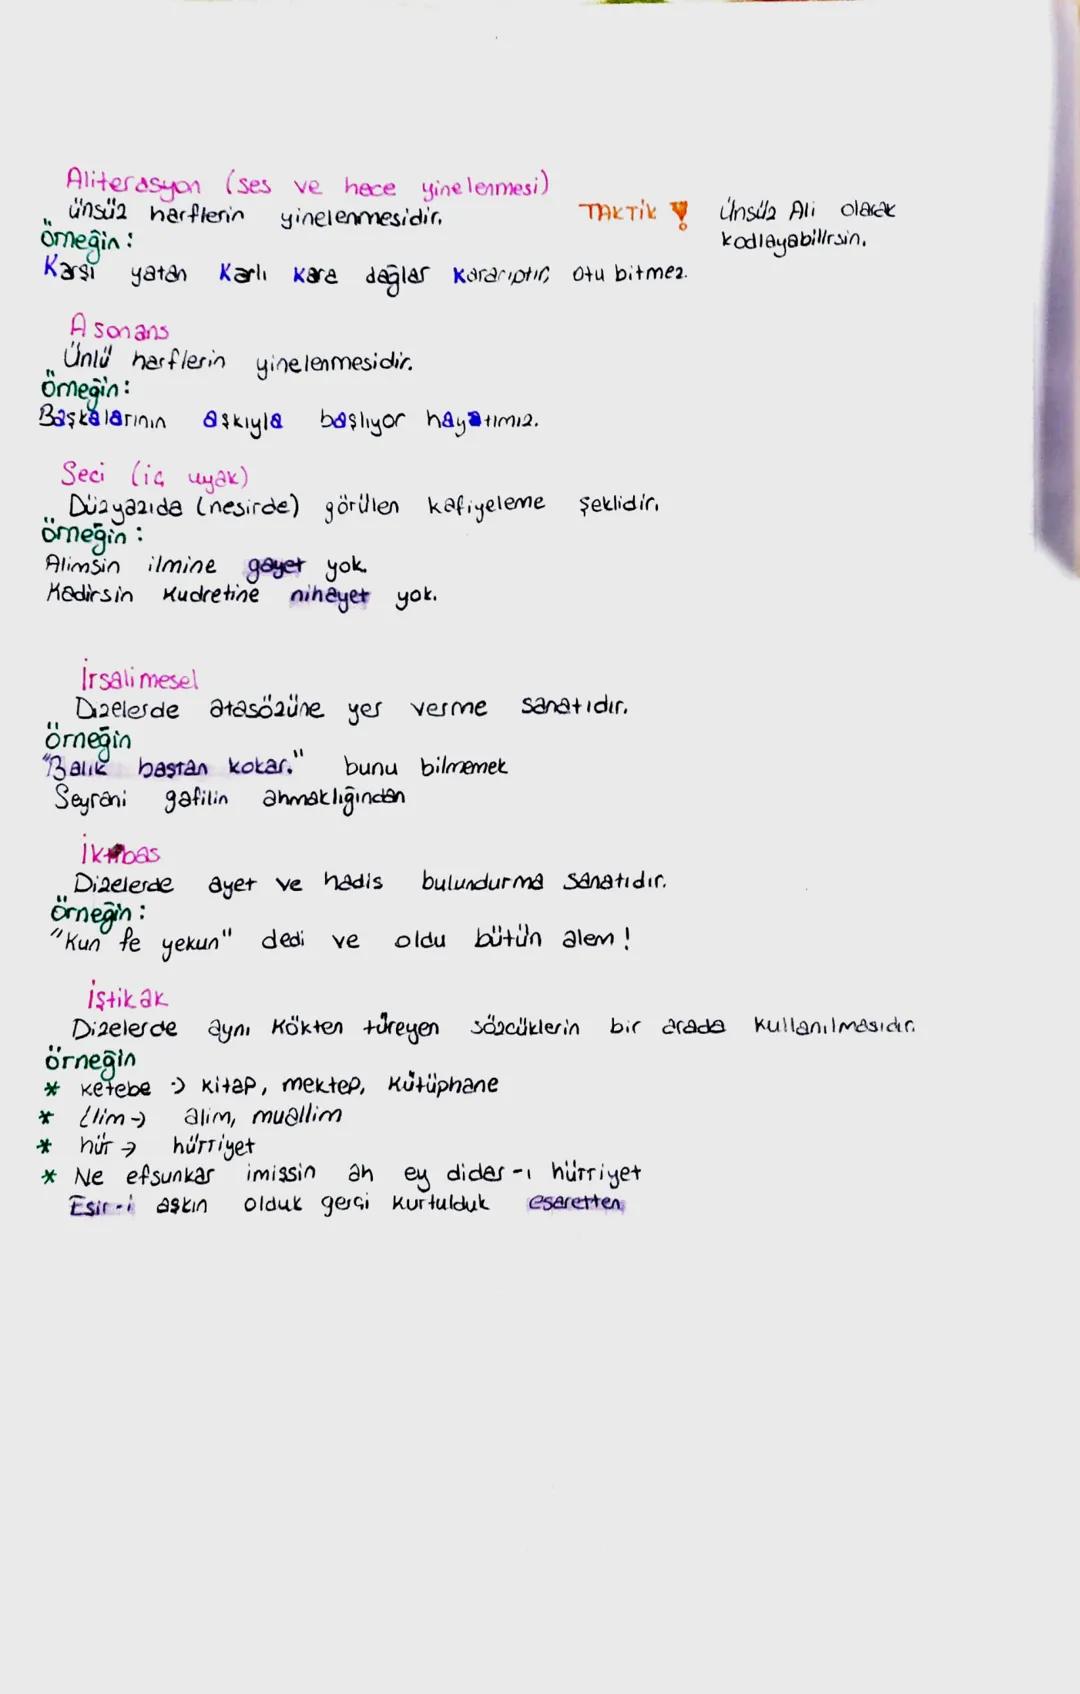 Aliterasyon (ses ve hece yinelenmesi)
ünsüz harflerin yinelenmesidir.
TAKTİK ! Ünsüz Ali olarak
kodlayabilirsin.
örneğin:
Karşı yatan Karlı Kara dağlar Kararıptır, otu bitmez.
Asonans
Ünlü harflerin yinelenmesidir.
örneğin:
Başkalarının aşkıyla başlıyor hayatımız.
Seci (iç uyak)
Düzyazıda (nesirde) görülen kafiyeleme şeklidir.
örneğin:
Alimsin ilmine gayet yok.
Kadirsin kudretine nihayet yok.
İrsalimesel
Dizelerde atasözüne yer verme sanatıdır.
örneğin
"Balık baştan kokar." bunu bilmemek
Seyrani gafilin ahmaklığından
İktibas
Dizelerde ayet ve hadis bulundurma sanatıdır.
örneğin:
"Kun fe yekun" dedi ve oldu bütün alem!
İştikak
Dizelerde aynı kökten türeyen sözcüklerin bir arada kullanılmasıdır.
örneğin
* ketebe → kitap, mektep, kütüphane
* ilim → alim, muallim
* hür → hürriyet
* Ne efsunkar imişsin ah ey didar-ı hürriyet
Esir-i aşkın olduk gerçi kurtulduk esaretten